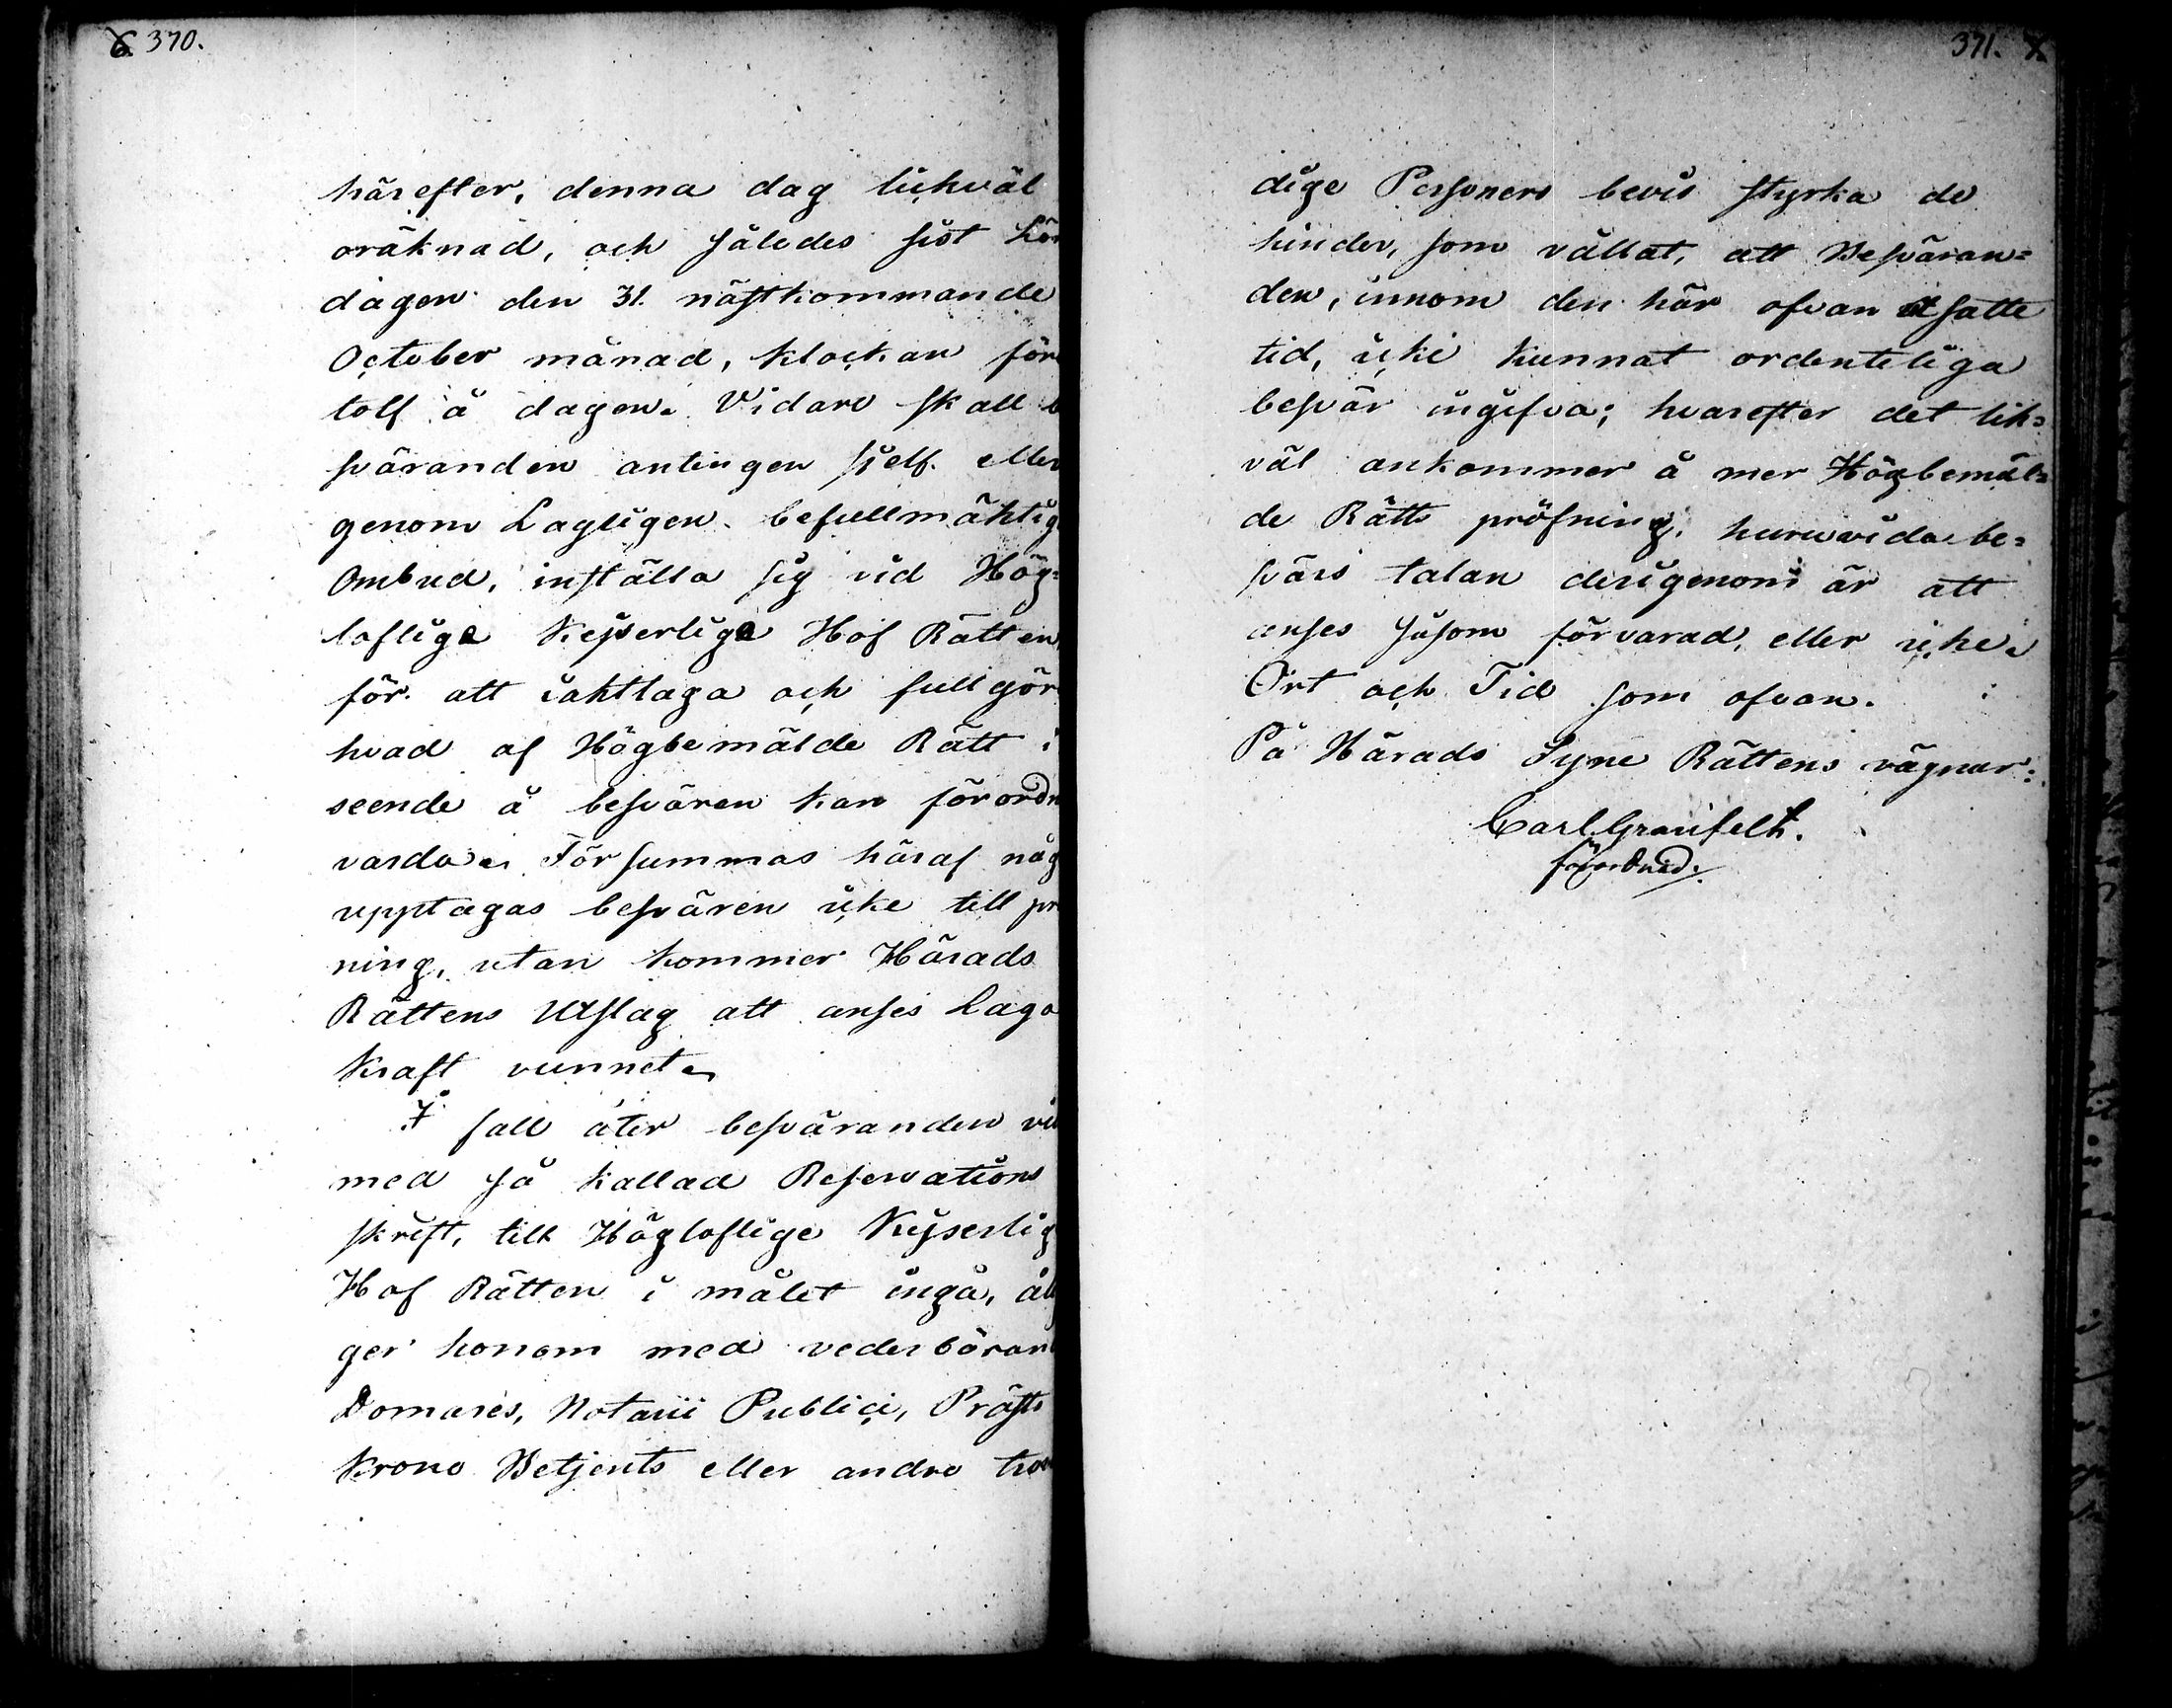 6. 370.
härefter, denna dag lickväl
oräknad, och således sist Lör
dagen den 31. nästkommande
October månad, klockan före
tolf å dagen. Vidare skall b
sväranden antingen sjelf eller
genom Lagligen befullmäktig
Ombud, inställa sig vid Hög=
loflige Kejserlige Hof Rätten
för att iakttaga och fullgör
hvad af Högbemälde Rätt i
seende å besvären kan förordn
varda. Försummas häraf någ
upptagas besvären icke till pr
ning, utan kommer Härads
Rättens Utslag att anses Laga
Kraft vunnet.
I fall åter besväranden vil
med så kallad Reservations
skrift, till Högloflige Kejserlig
Hof Rätten i målet ingå, ål
ger honom med vederbörand
Domares, Notarii Publici, Präst
Krono Betjents eller andre trov
371.
dige Personers bevis styrka de
hinder, som vållat, att Besväran=
den, innom den här ofvan utsatte
tid, icke kunnat ordenteliga
besvär ingifva; hvarefter det lik=
väl ankommer å mer Högbemäl=
de Rätts pröfning, huruvida be=
svärs talan derigenom är att
anses såsom förvarad, eller icke.
Ort och Tid som ofvan.
På Härads Syne Rättens vägnar:
Carl Granfelt.
förordnad.